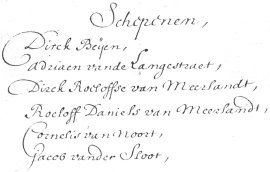 Schepenen,
Dirck Beijen,
Adriaen vande Langestraet,
Dirck Roeloffse van Meerlandt,
Roeloff Daniels van Meerlandt,
Cornelis van Noort,
Jacob vander Sloot,